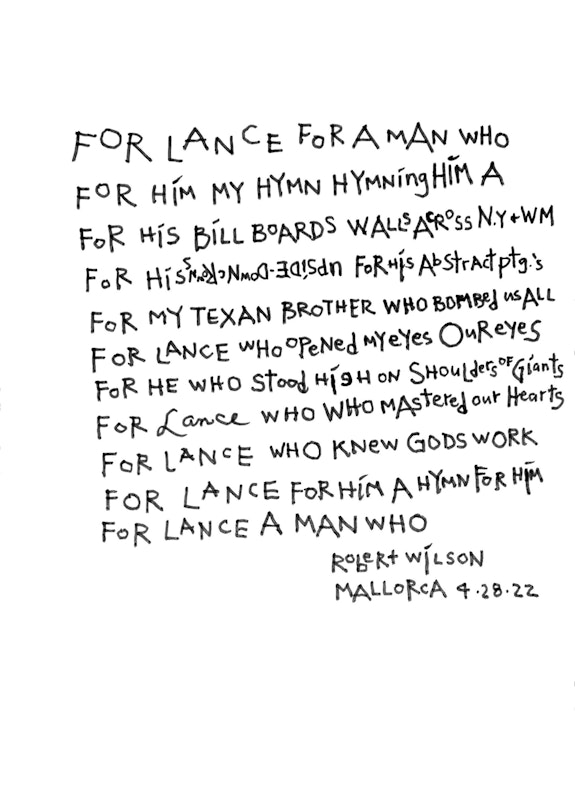 FOR LANCE FOR A MAN WHO
FOR HIM MY HYMN HYMNing HIM A
FOR HIS BILL BOARDS WALLS ACROSS N.Y + WM
FOR HIS UPSIDE-DOWN FOR HIS AbStrAct ptg.'s
FOR MY TEXAN BROTHER WHO BOMBED us ALL
FOR LANCE WHO OPENED MY EYES OUR EYES
FOR HE WHO Stood HIGH ON SHOULders OF Giants
FOR Lance WHO WHO MAStered our Hearts
FOR LANCE WHO KNEW GODS WORK
FOR LANCE FOR HIM A HYMN FOR HIM
FOR LANCE A MAN WHO
RobERt WILSON
MALLORCA 4.28.22